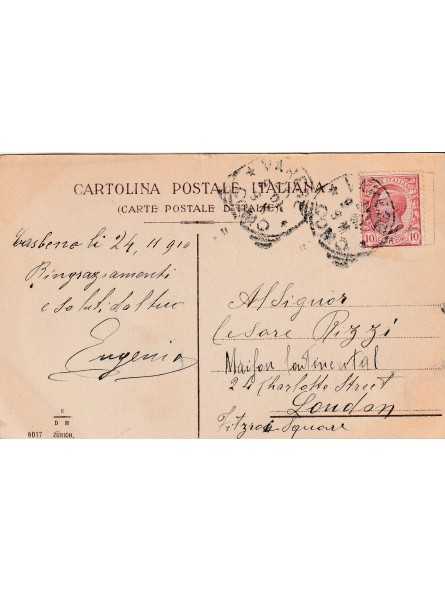 CARTOLINA POSTALE ITALIANA
(CARTE POSTALE D'ITALIE)
li 24, 11 910
Ringraziamenti
e saluti dal tuo
Eugenio
Al Signor
Cesare Rizzi
Maison Continental
24 Charlotte Street
London
Fitzroe Square
10 10
E
D M
6017 ZÜRICH,